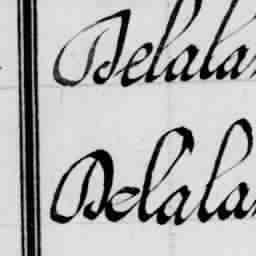 Delala
Delala